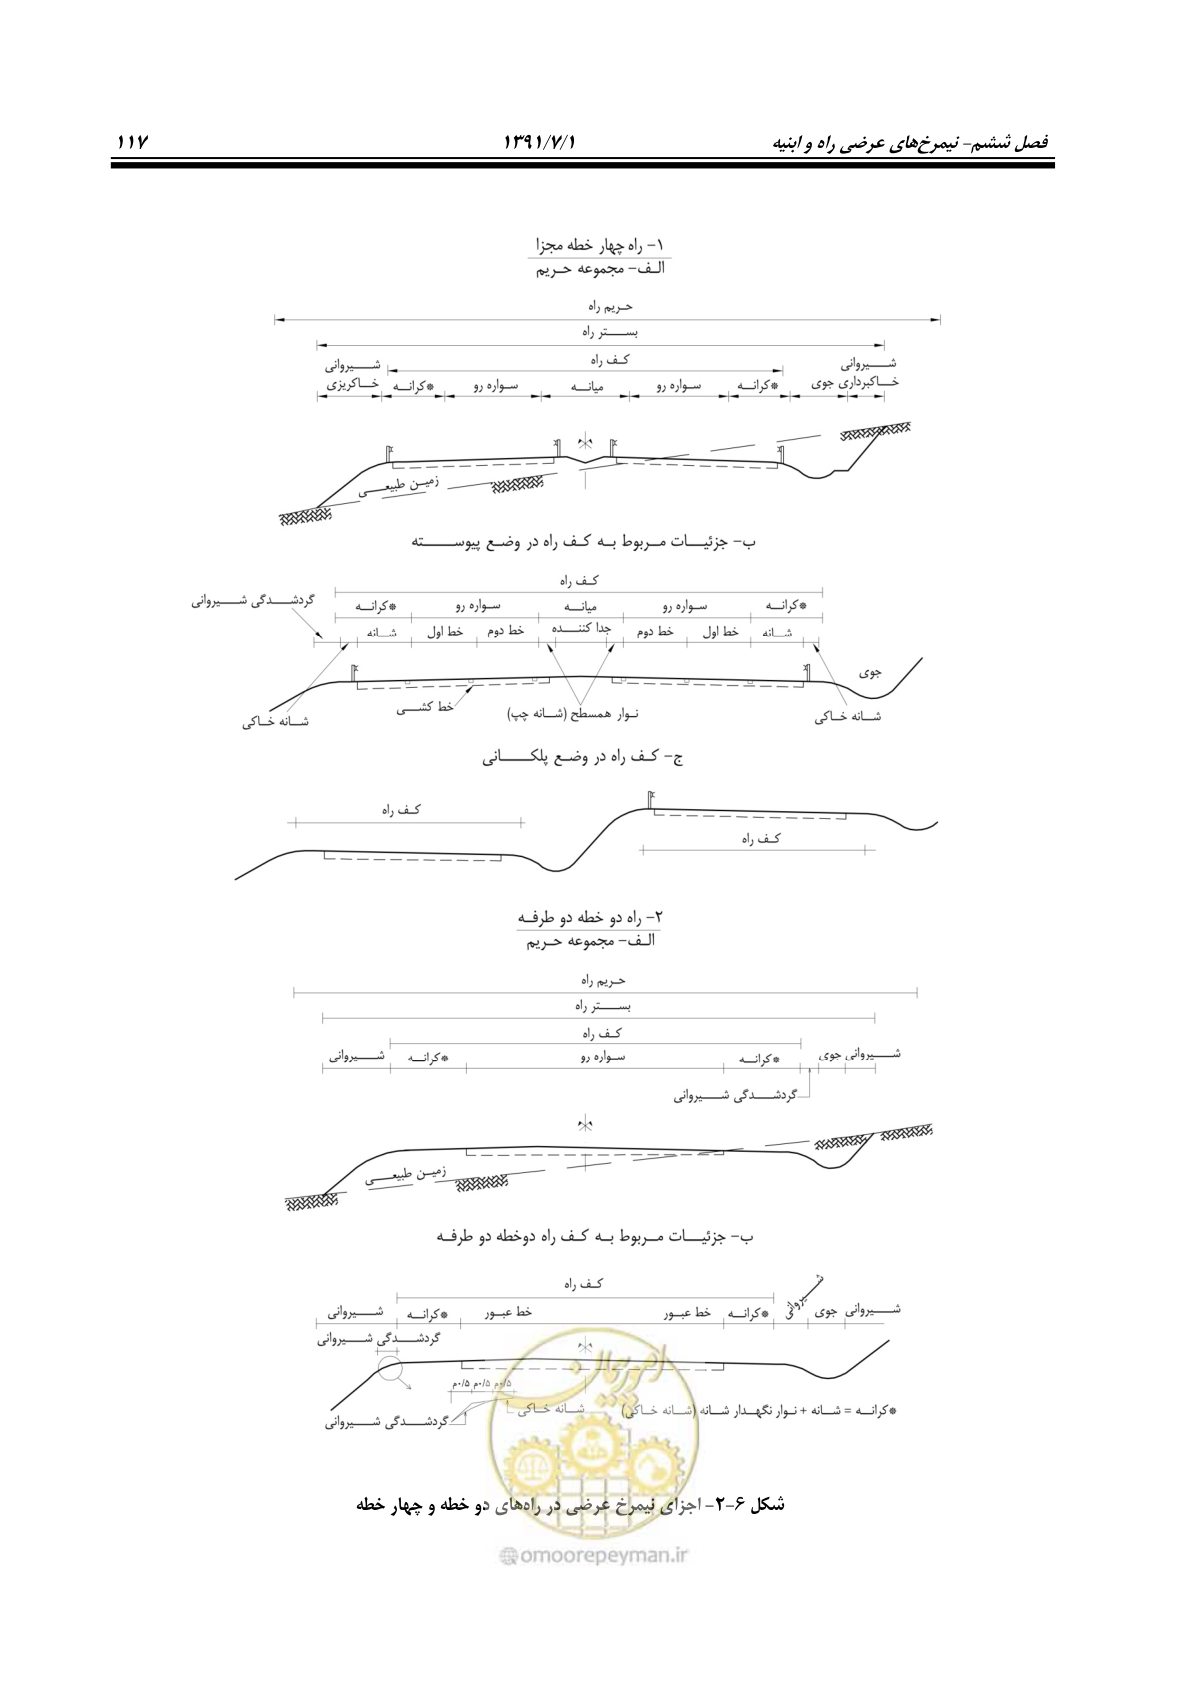 فصل ششم- نیمرخ‌های عرضی راه و ابنیه ۱۳۹۱/۷/۱ ۱۱۷
۱- راه چهار خطه مجزا
الف- مجموعه حریم
حریم راه
بستر راه
کف راه
شیروانی خاکبرداری
جوی
*کرانه
سواره رو
میانه
سواره رو
*کرانه
شیروانی خاکریزی
زمین طبیعی
ب- جزئیات مربوط به کف راه در وضع پیوسته
کف راه
*کرانه سواره رو میانه سواره رو *کرانه گردشدگی شیروانی
شانه خط اول خط دوم جدا کننده خط دوم خط اول شانه
جوی
شانه خاکی نوار همسطح (شانه چپ) خط کشی شانه خاکی
ج- کف راه در وضع پلکانی
کف راه
کف راه
۲- راه دو خطه دو طرفه
الف- مجموعه حریم
حریم راه
بستر راه
کف راه
شیروانی جوی *کرانه سواره رو *کرانه شیروانی
گردشدگی شیروانی
زمین طبیعی
ب- جزئیات مربوط به کف راه دوخطه دو طرفه
کف راه
شیروانی جوی شیروانی *کرانه خط عبور خط عبور *کرانه شیروانی
گردشدگی شیروانی
۰/۵م ۰/۵م ۰/۵م
*کرانه = شانه + نوار نگهدار شانه (شانه خاکی) شانه خاکی
گردشدگی شیروانی
امور پیمان
شکل ۶-۲- اجزای نیمرخ عرضی در راه‌های دو خطه و چهار خطه
@omoorepeyman.ir